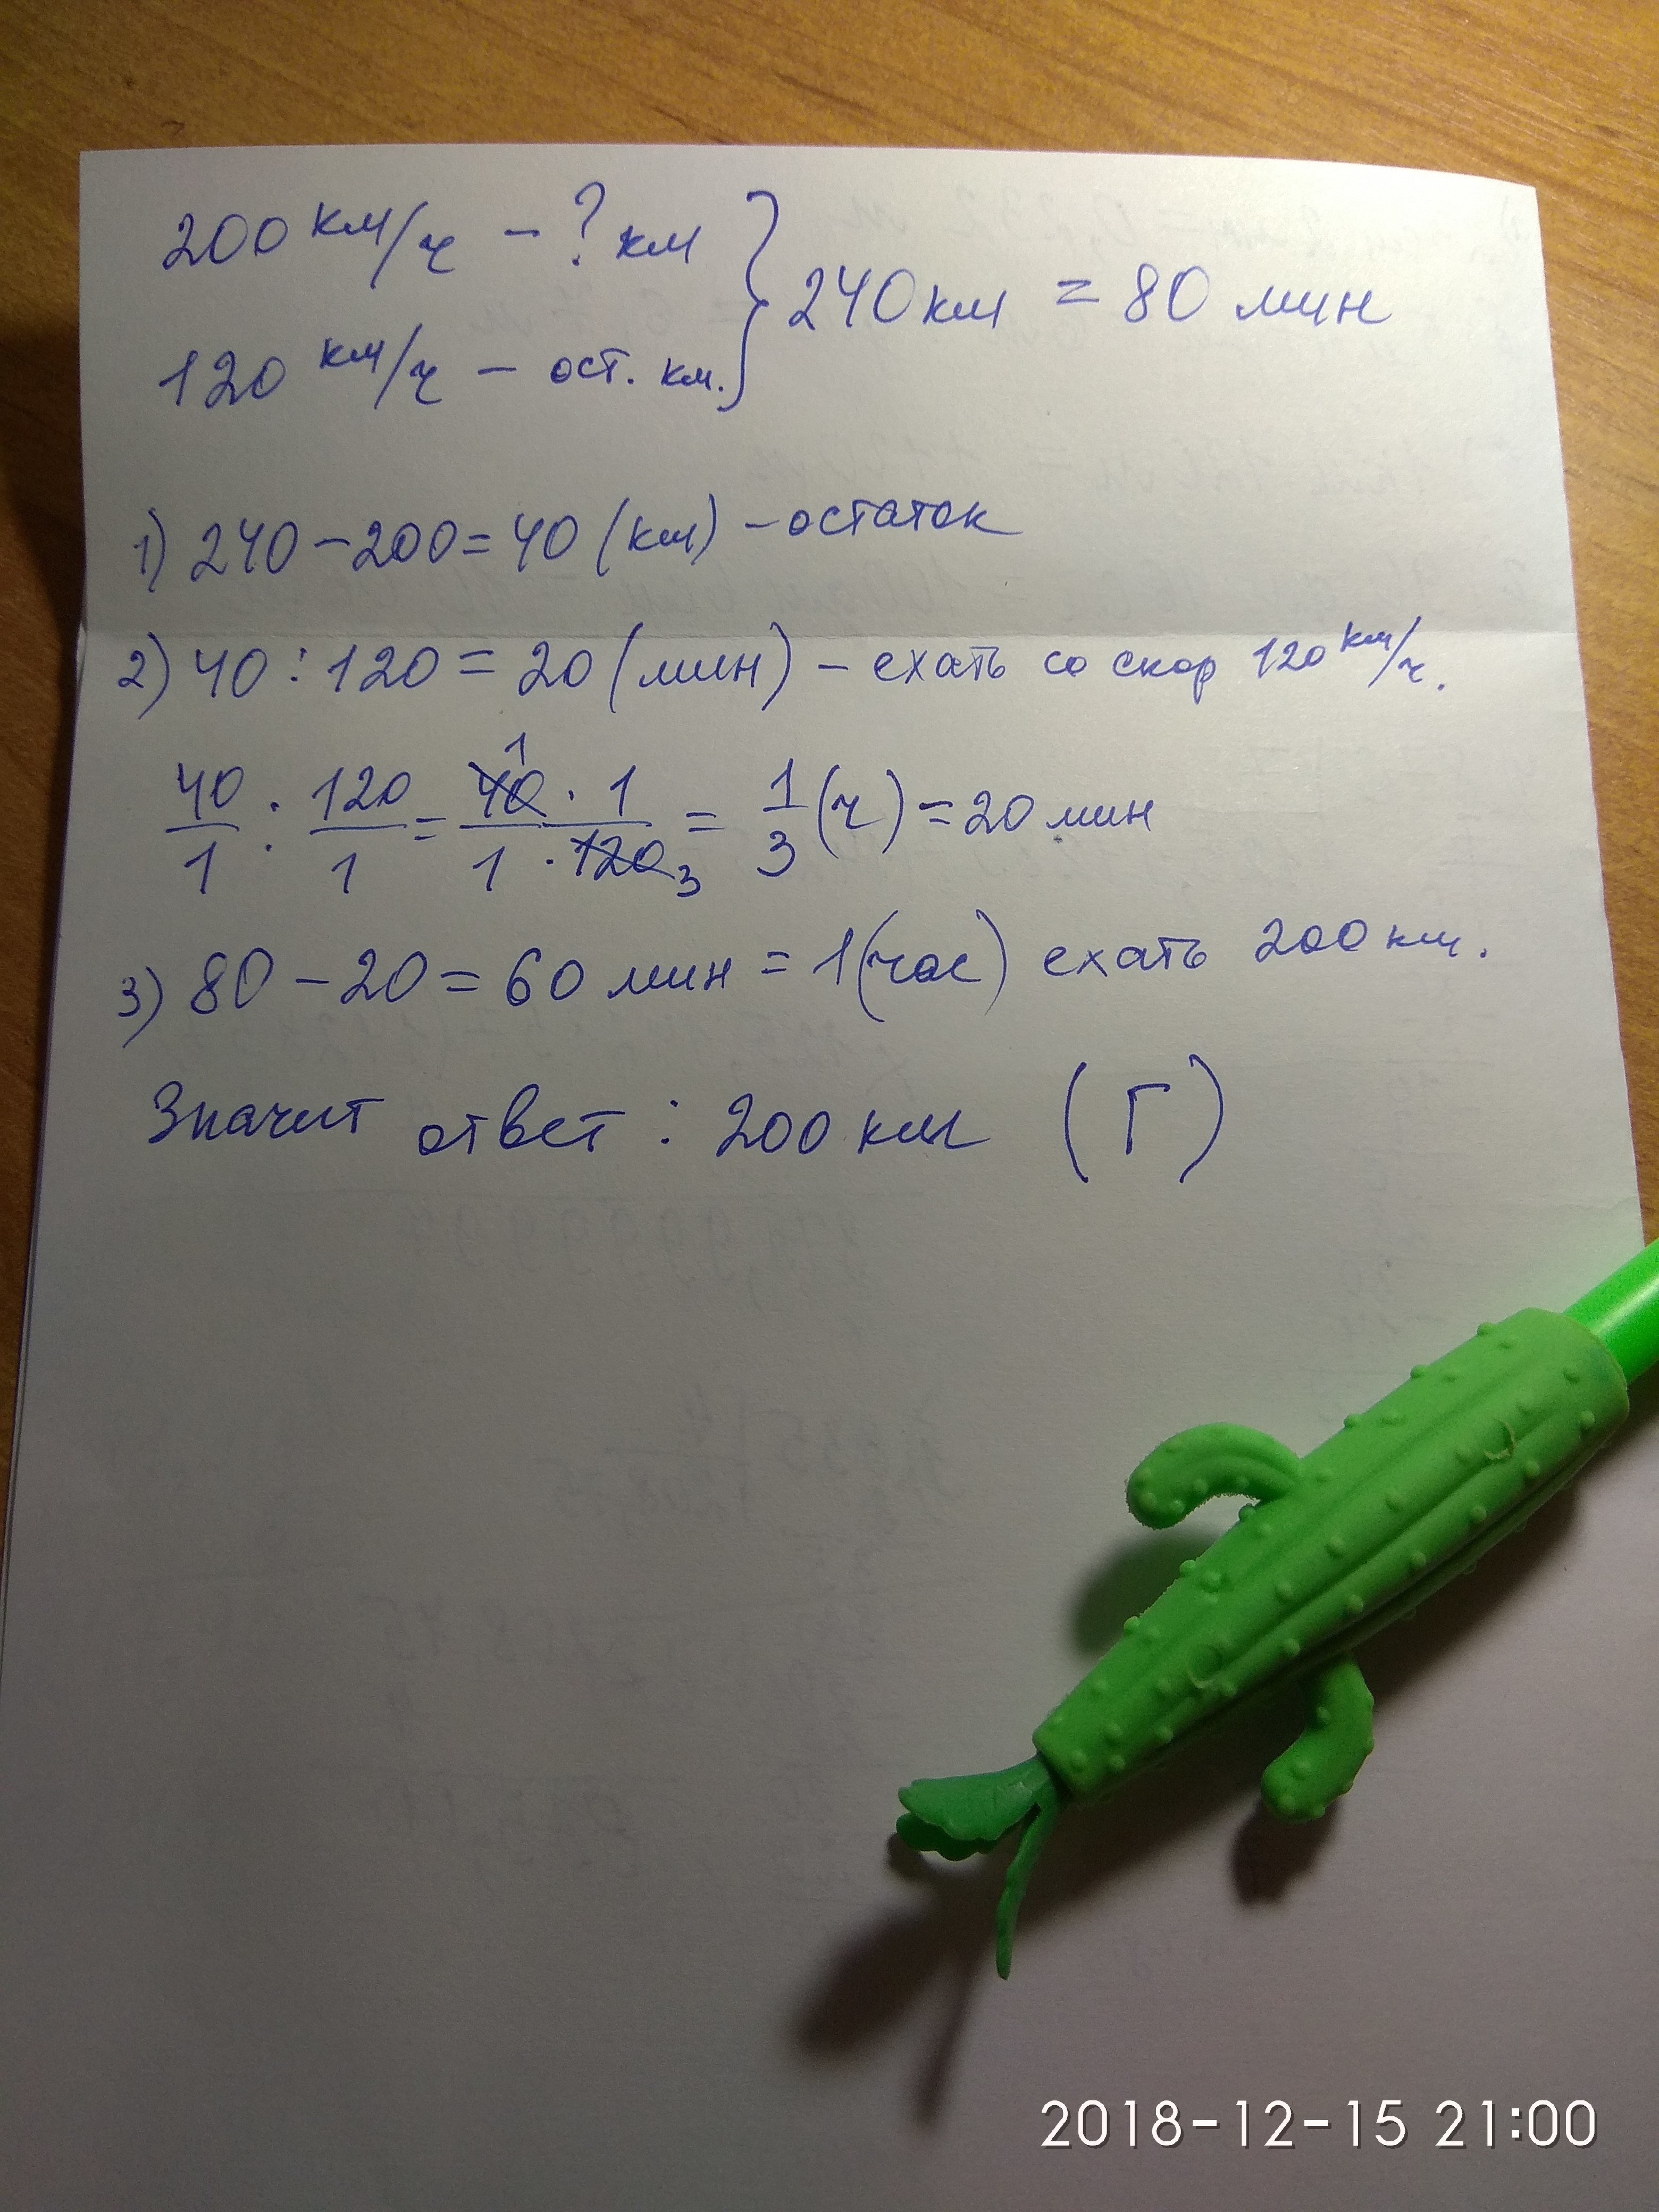 200 км/ч - ? км
120 км/ч - ост. км.
240 км = 80 мин
1) 240 - 200 = 40 (км) - остаток
2) 40 : 120 = 20 (мин) - ехать со скор 120 км/ч.
40/1 : 120/1 = 40 1 · 1 / 1 · 120 3 = 1/3 (ч) = 20 мин
3) 80 - 20 = 60 мин = 1 (час) ехать 200 км.
Значит ответ : 200 км (Г)
2018-12-15 21:00